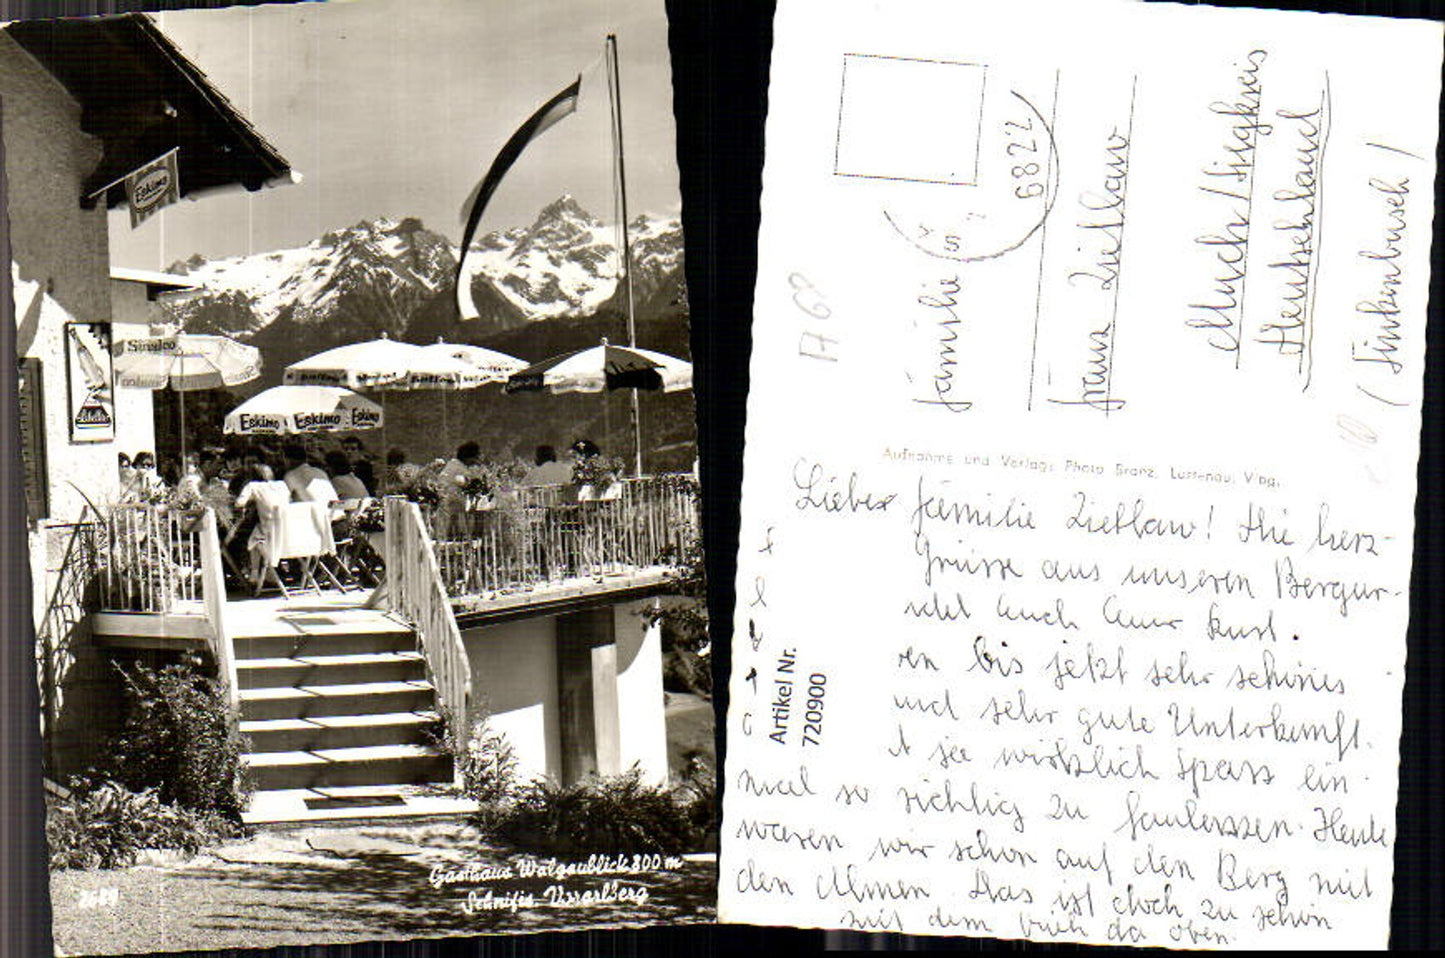 Eskimo
Sinalco
Eskimo Eskimo Eskimo
2689
Gasthaus Walgaublick 800 m
Schnifis. Vorarlberg
6822
A68
Familie
Franz Zietlaw
Much / Siegkreis
(Finkenbusch)
Aufnahme und Verlag: Photo Branz, Lustenau, Vlbg.
Artikel Nr.
720900
Liebe Familie Zietlaw! Die herz-
Grüsse aus unseren Bergur-
Euch Eure Kurt.
en bis jetzt sehr schönes
und sehr gute Unterkunft.
t see wirklich Spass ein
mal so richtig zu faulenzen. Heute
waren wir schon auf den Berg mit
den Almen. Das ist doch zu schön
mit dem Vieh da oben.